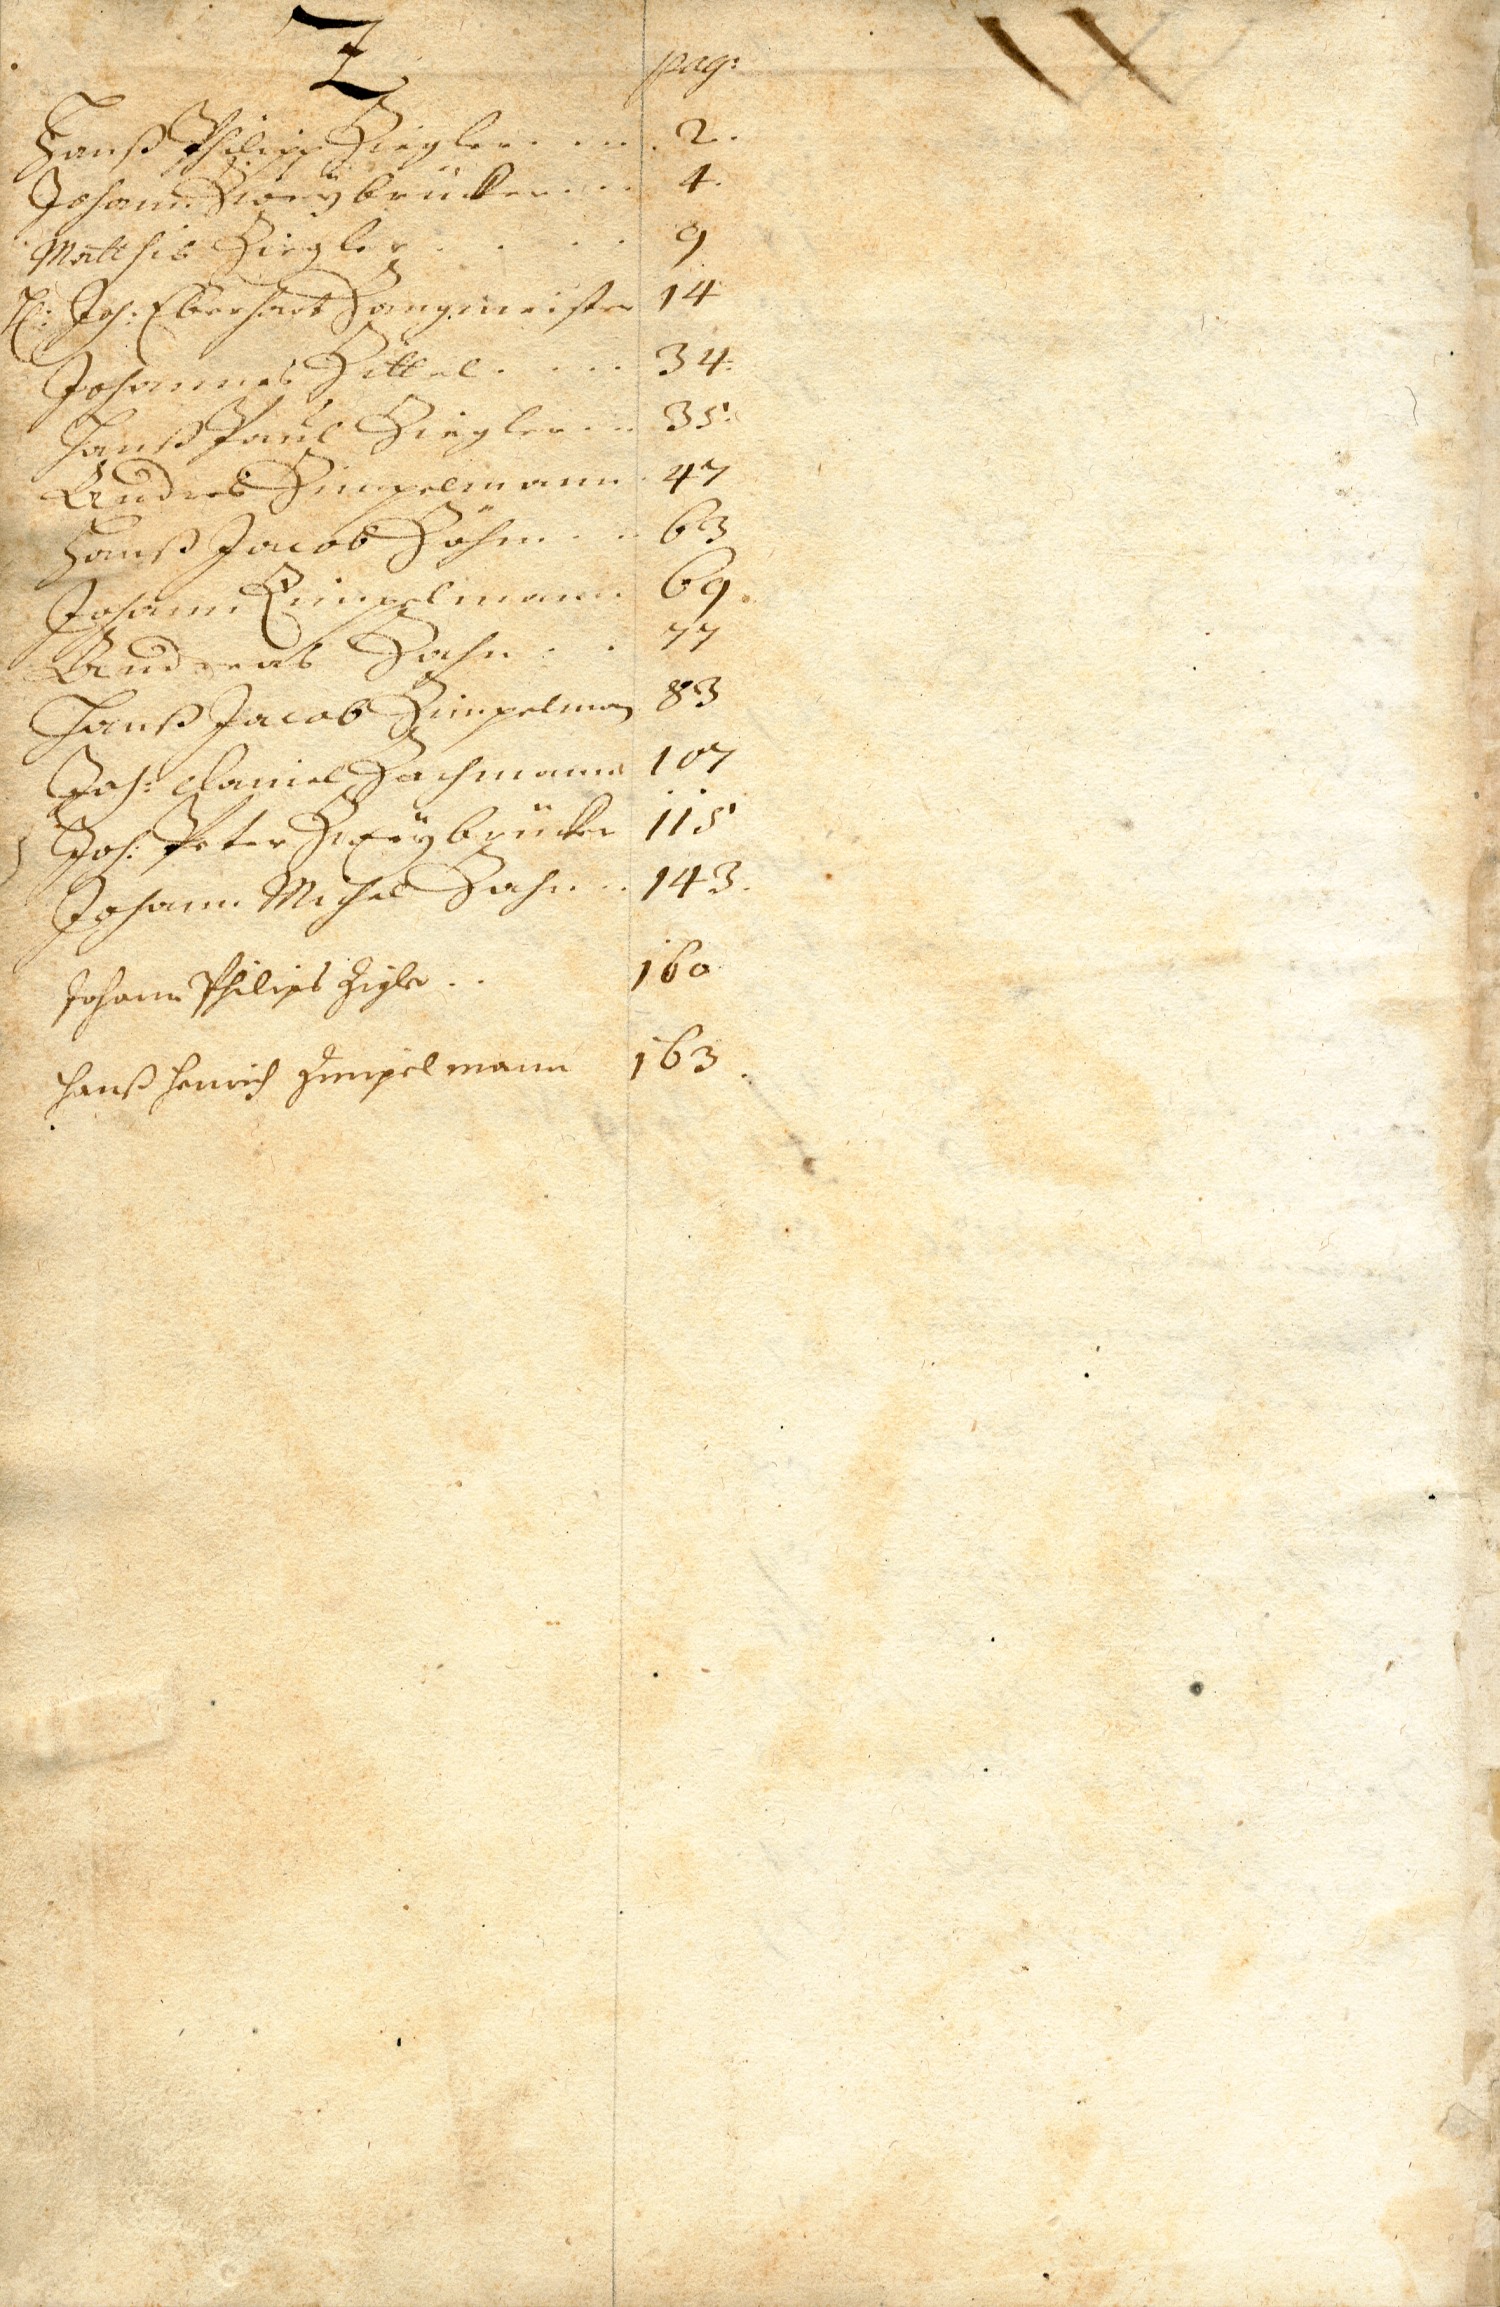 Z
pag:
Hanß Philipp Ziegler . . . . 2.
Johann Zweÿbrücker . . . 4.
Matthis Ziegler . . . . 9
H: Joh: Eberhart Zangmeister 14
Johannes Zittel . . . . 34.
Hanß Paul Ziegler . . . 35.
Andres Zimpelmann . 47
Hanß Jacob Zöhm . . . 63
Johann Zimpelmann . 69.
Andreas Zahn . . 77
Hanß Jacob Zimpelman 83
Joh: Daniel Zachmann 107
Joh: Peter Zweÿbrücker 115
Johann Michel Zahn . . 143.
Johann Philips Zigler . . 160
Hanß Henrich Zimpelmann 163.